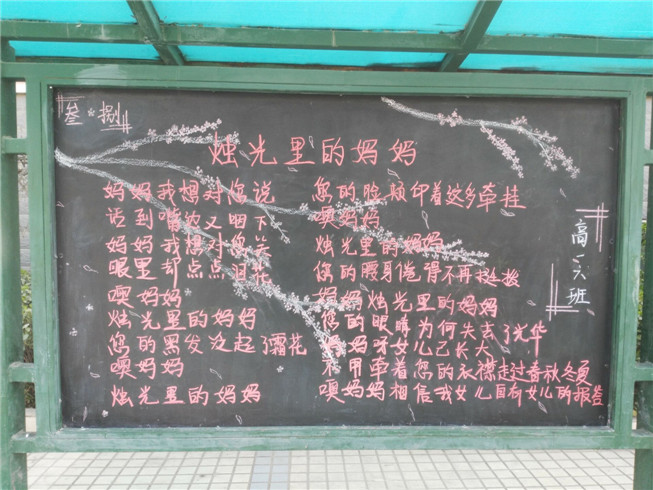 叁·捌
烛光里的妈妈
妈妈我想对您说
话到嘴边又咽下
妈妈我想对您笑
眼里却点点泪花
噢妈妈
烛光里的妈妈
您的黑发泛起了霜花
噢妈妈
烛光里的妈妈
您的脸颊印着这多牵挂
噢妈妈
烛光里的妈妈
您的腰身倦得不再挺拨
妈妈烛光里的妈妈
您的眼睛为何失去了光华
妈妈呀女儿已长大
不用牵着您的衣襟走过春秋冬夏
噢妈妈相信我女儿自有女儿的报答
高一六班